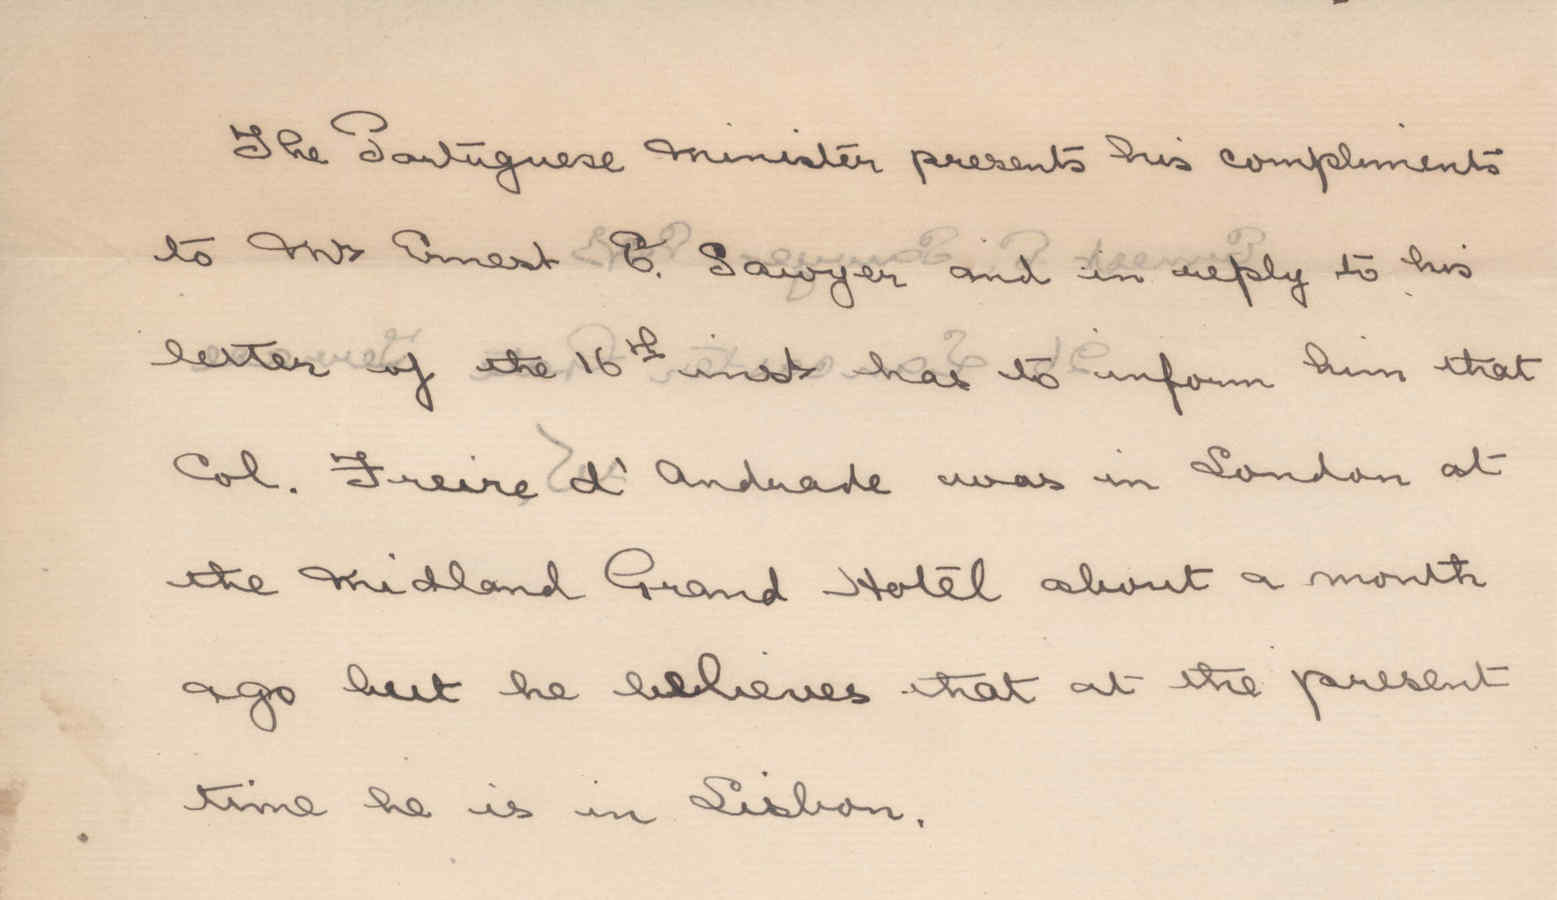 The Portuguese Minister presents his compliments
to Mr Ernest E. Sawyer and in reply to his
letter of the 16th inst has to inform him that
Col. Freire d' Andrade was in London at
the Midland Grand Hotel about a month
ago but he believes that at the present
time he is in Lisbon.